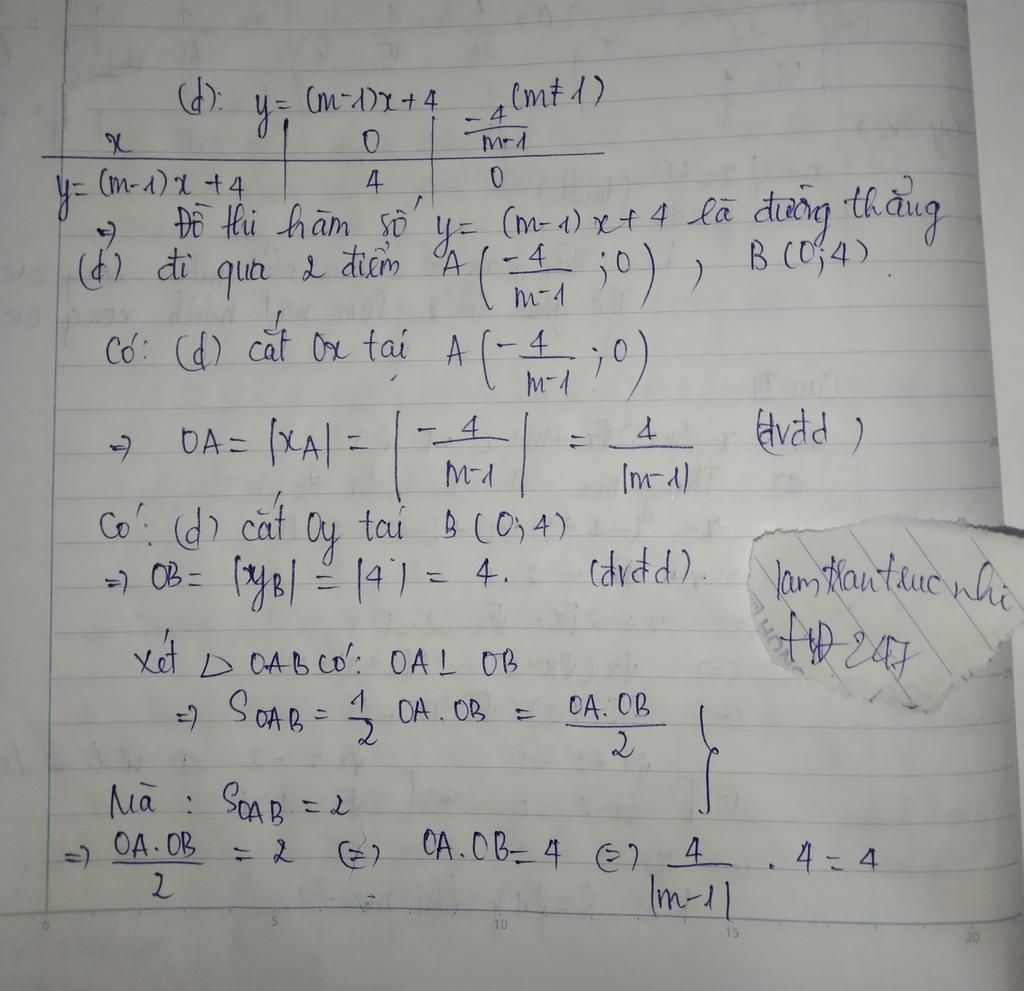 (d): y = (m-1)x + 4 (m ≠ 1)
x | 0 | -4/(m-1)
y = (m-1)x + 4 | 4 | 0
=> Đồ thị hàm số y = (m-1)x + 4 là đường thẳng
(d) đi qua 2 điểm A(-4/(m-1); 0), B(0; 4).
Có: (d) cắt Ox tại A(-4/(m-1); 0)
=> OA = |xA| = |-4/(m-1)| = 4/|m-1| (đvđd)
Có: (d) cắt Oy tại B(0; 4)
=> OB = |yB| = |4| = 4. (đvđd).
Xét △ OAB có: OA ⊥ OB
=> SOAB = 1/2 OA.OB = OA.OB/2 }
Mà: SOAB = 2
=> OA.OB/2 = 2 <=> OA.OB = 4 <=> 4/|m-1| . 4 = 4
247
0 5 10 15 20